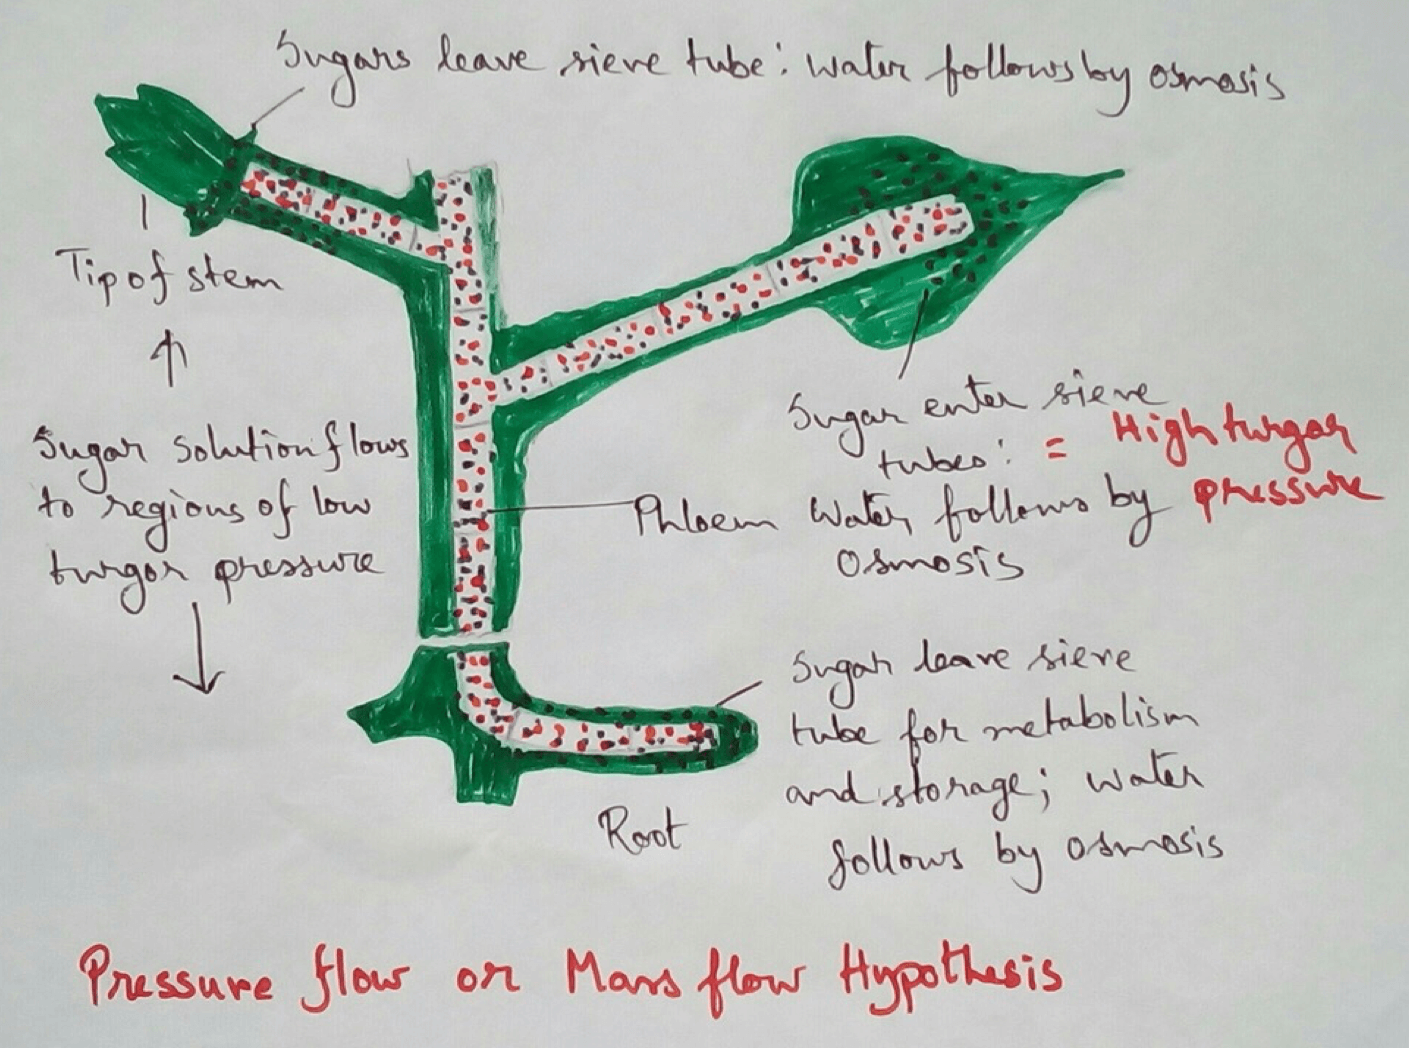 Sugars leave sieve tube: water follows by osmosis
Tip of stem
Sugar solution flows
to regions of low
turgor pressure
Phloem
Sugar enter sieve
tubes: = High turgor
Water follows by pressure
osmosis
Sugar leave sieve
tube for metabolism
and storage; water
follows by osmosis
Root
Pressure flow or Mass flow Hypothesis